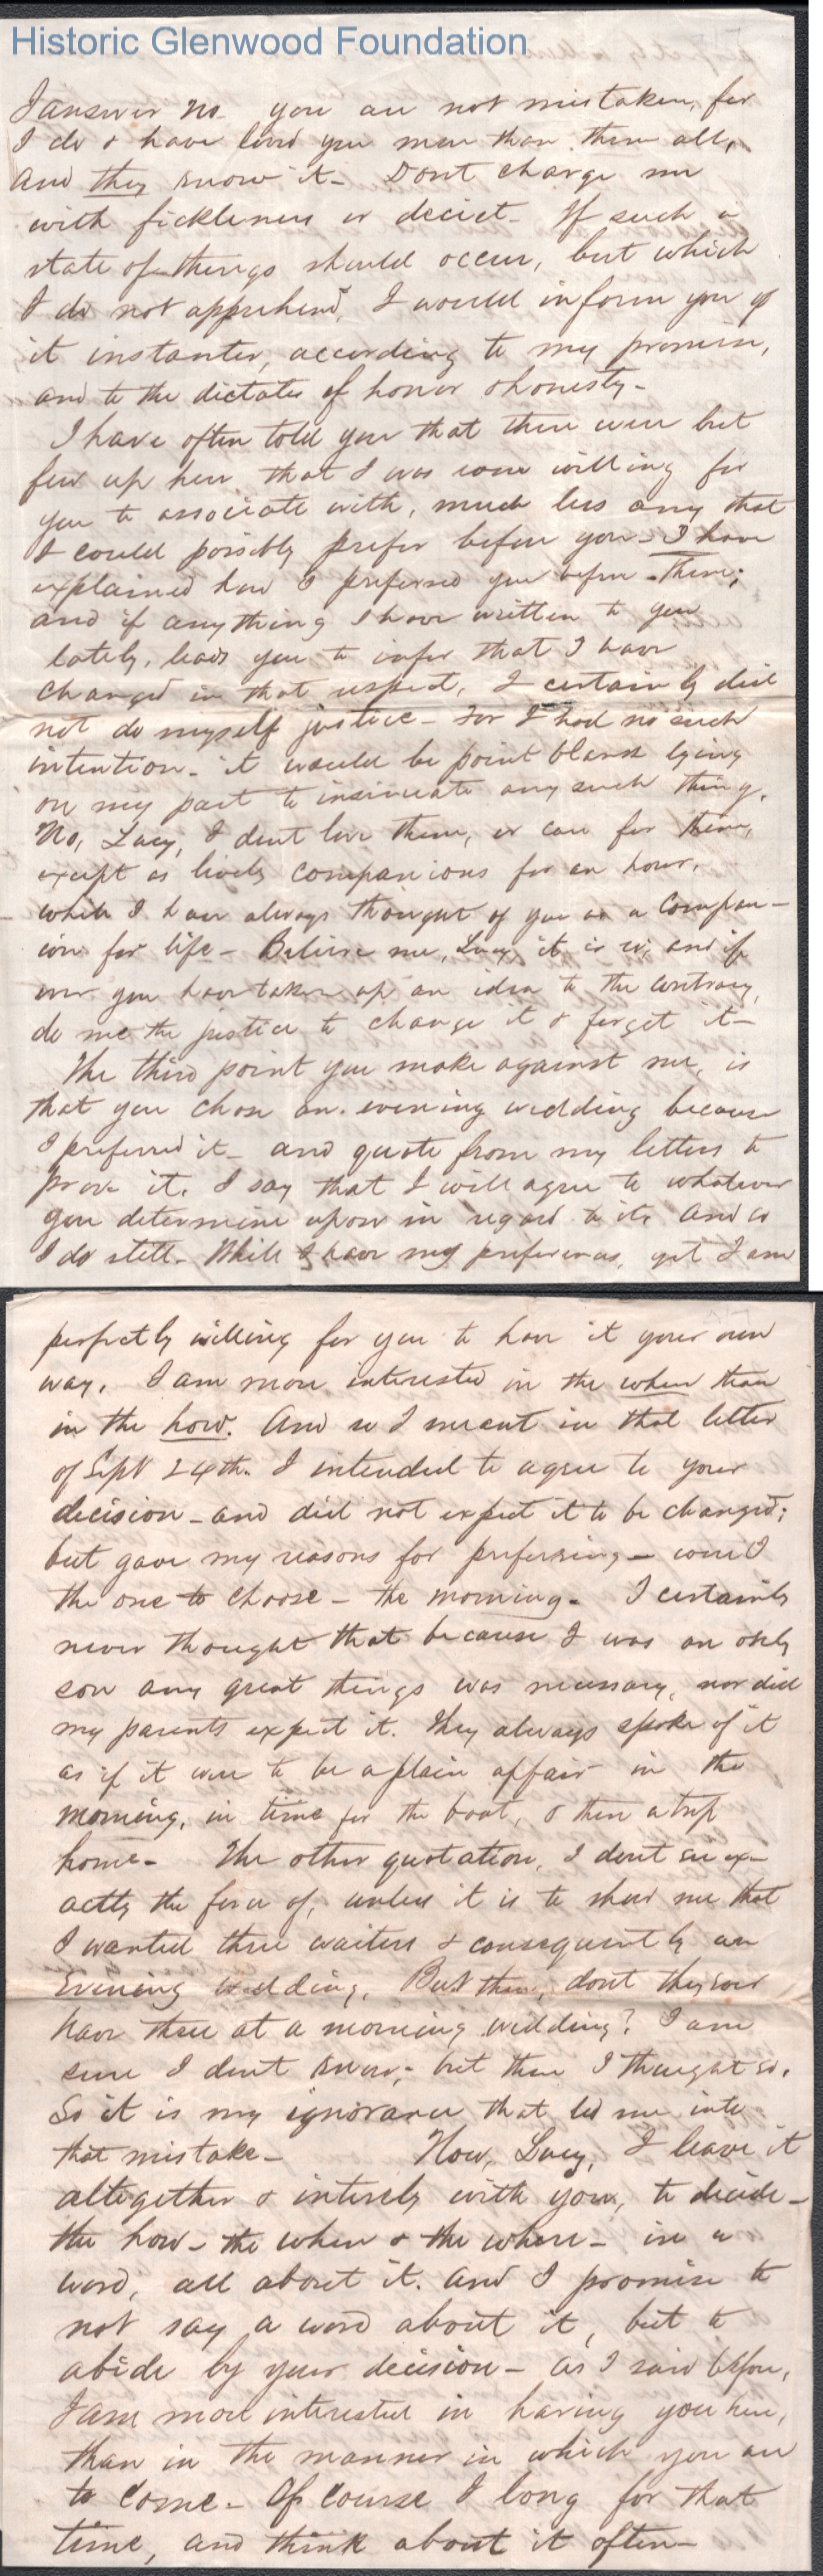 Historic Glenwood Foundation
I answer no you are not mistaken, for
I do & have loved you more than them all,
and they know it - Dont charge me
with fickleness or deceit - If such a
state of things should occur, but which
I do not apprehend, I would inform you of
it instanter, according to my promise,
and to the dictates of honor & honesty -
I have often told you that there were but
few up here that I was even willing for
you to associate with, much less any that
I could possibly prefer before you - I have
explained how I preferred you before them;
and if anything I have written to you
lately, leads you to infer that I have
changed in that respect, I certainly did
not do myself justice - For I had no such
intention - it would be point blank lying
on my part to insinuate any such thing.
No, Lucy, I dont love them, or care for them,
except as lively companions for an hour,
while I have always thought of you as a compan-
ion for life - Believe me, Lucy, it is so; and if
ever you have taken up an idea to the contrary,
do me the justice to change it & forget it -
The third point you make against me, is
that you chose an evening wedding because
I preferred it - and quote from my letters to
prove it. I say that I will agree to whatever
you determine upon in regard to it. And so
I do still - While I have my preferences, yet I am
perfectly willing for you to have it your own
way. I am more interested in the when than
in the how. And so I meant in that letter
of Sept 24th. I intended to agree to your
decision - and did not expect it to be changed;
but gave my reasons for preferring - were I
the one to choose - the morning - I certainly
never thought that because I was an only
son any great things was necessary, nor did
my parents expect it. They always spoke of it
as if it were to be a plain affair in the
morning, in time for the boat, & then a trip
home - The other quotation, I dont see ex-
actly the force of, unless it is to show me that
I wanted three waiters & consequently an
evening wedding. But then, dont they ever
have three at a morning wedding? I am
sure I dont know; - but then I thought so.
So it is my ignorance that led me into
that mistake - Now, Lucy, I leave it
altogether & intirely with you, to decide -
the how - the when & the where - in a
word, all about it. And I promise to
not say a word about it, but to
abide by your decision - as I said before,
I am more interested in having you here,
than in the manner in which you are
to come - Of course I long for that
time, and think about it often -